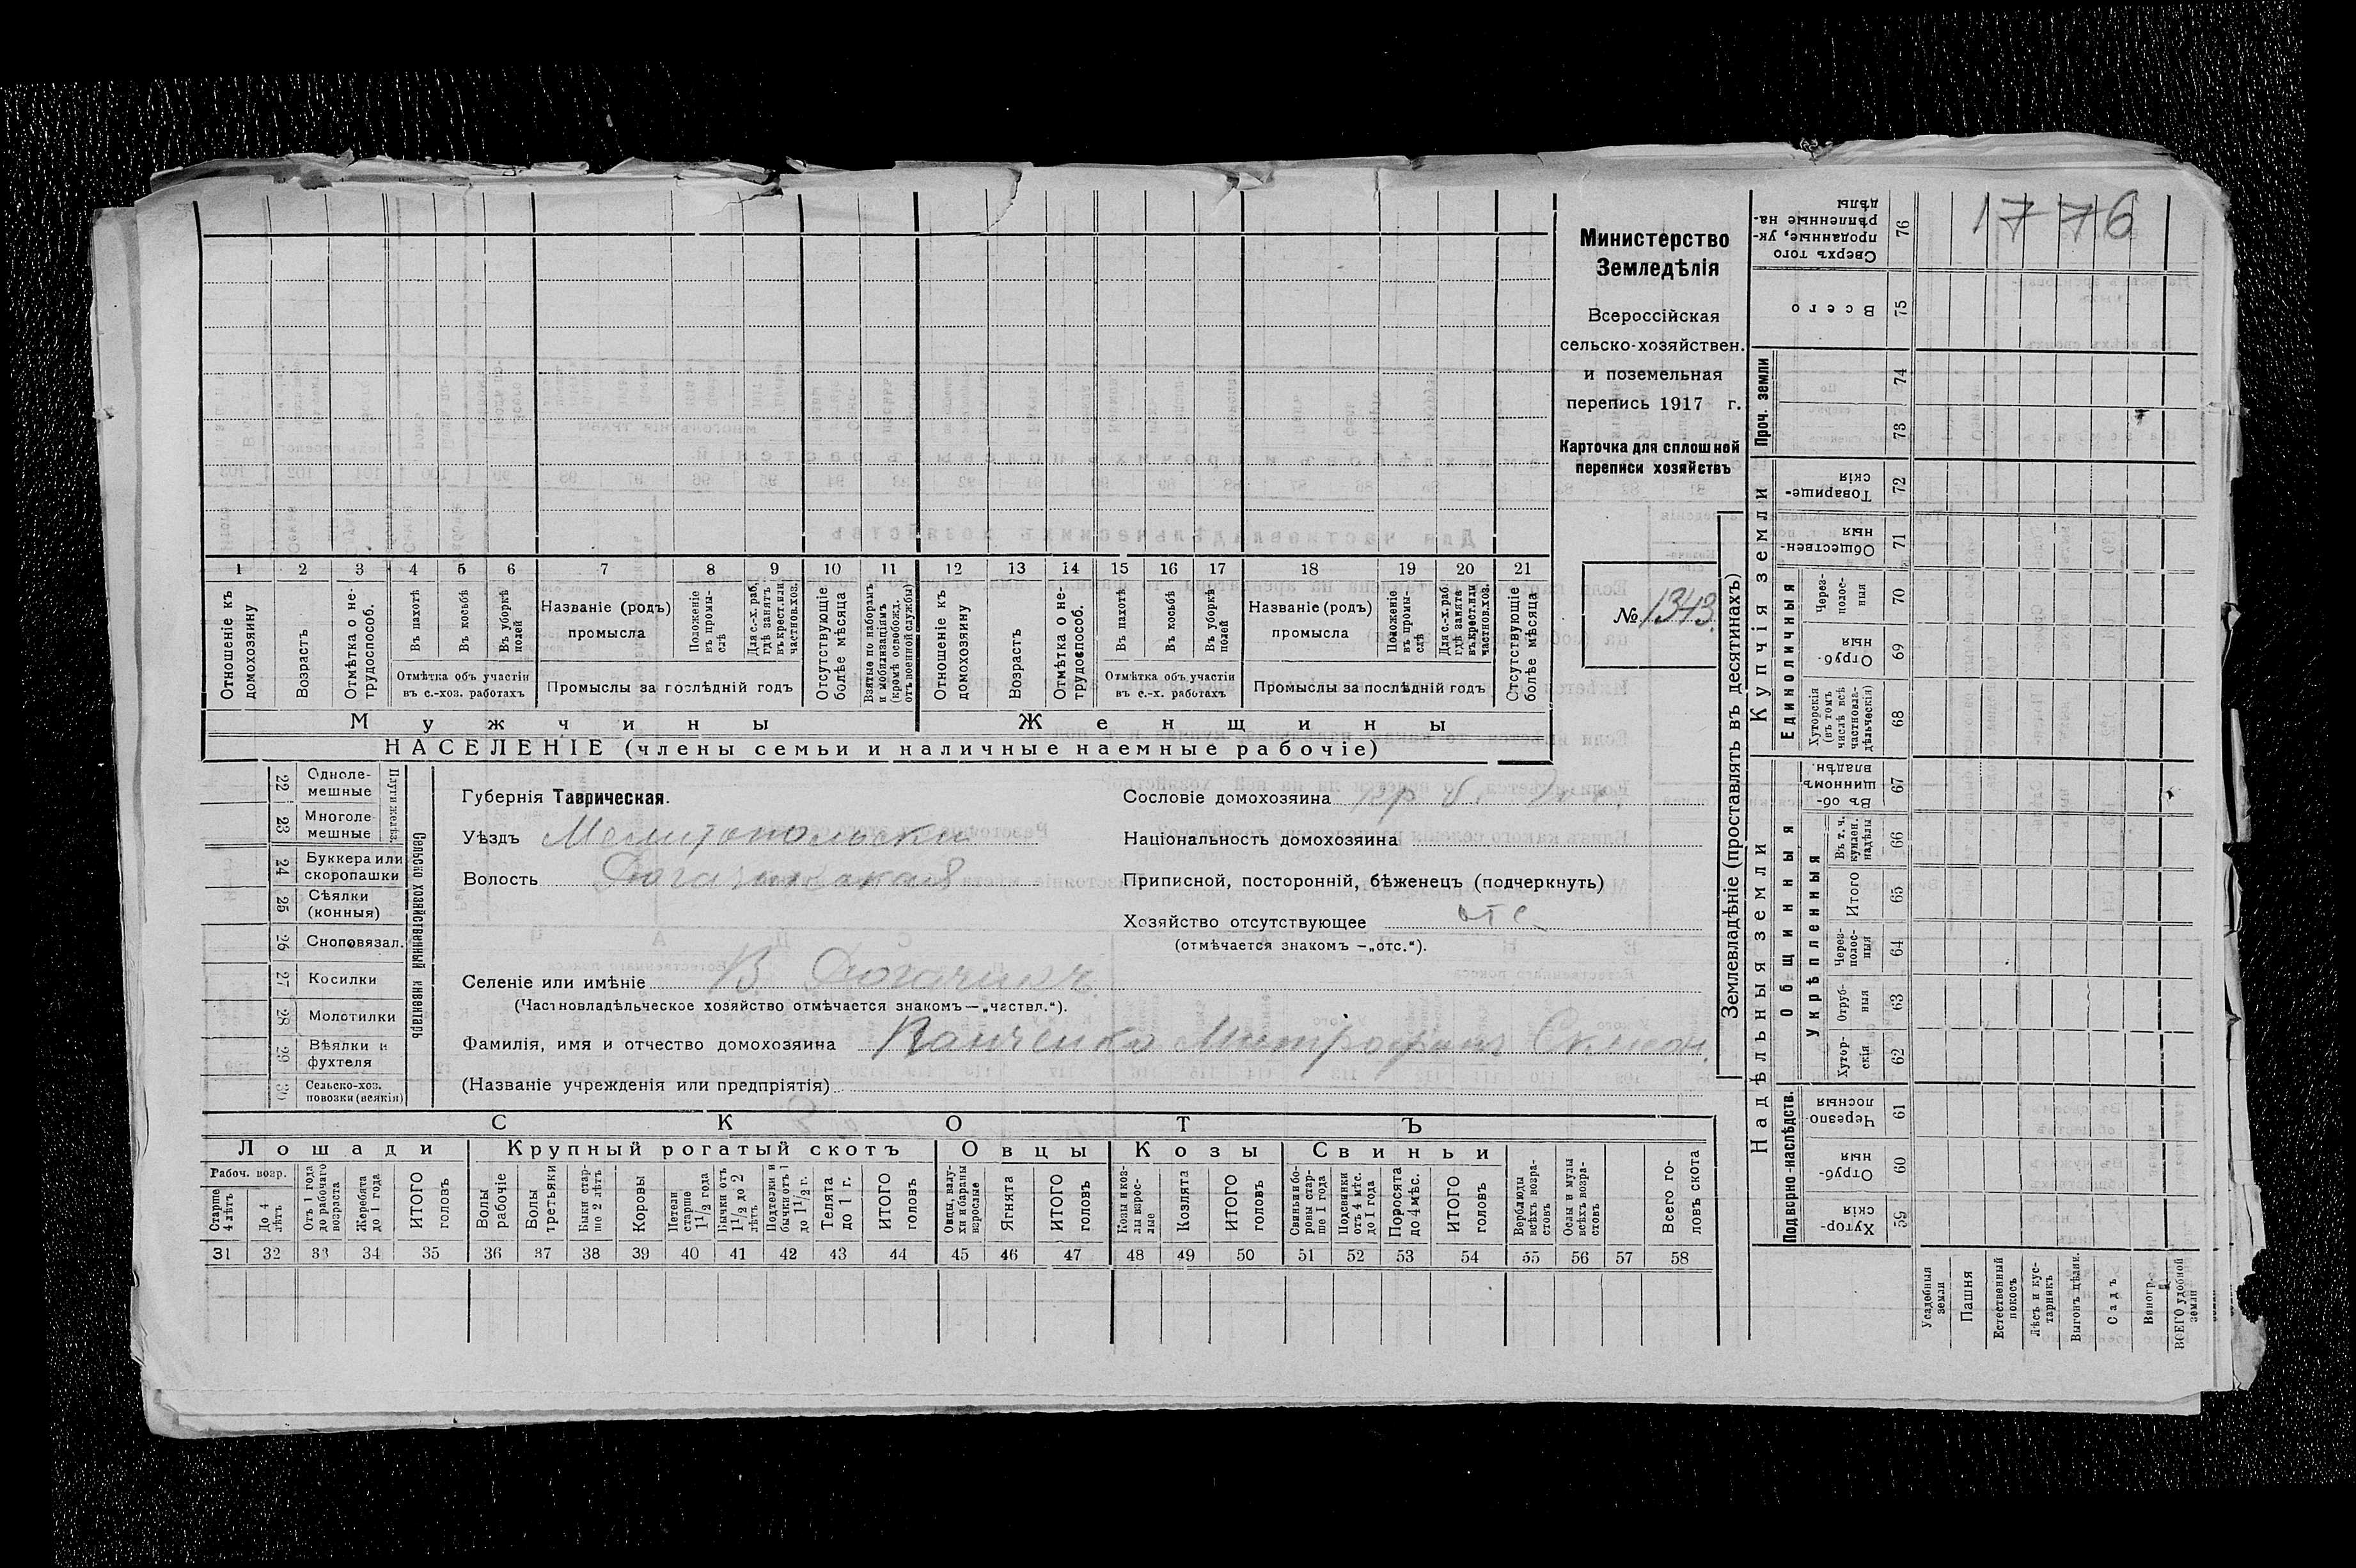 1776
Министерство
Земледѣлія
Всероссійская
сельско-хозяйствен.
и поземельная
перепись 1917 г.
Карточка для сплошной
переписи хозяйствъ
№ 1343.
1 2 3 4 5 6 7 8 9 10 11 12 13 14 15 16 17 18 19 20 21
Отношеніе къ домохозяину
Возрастъ
Отмѣтка о нетрудоспособ.
Въ пахотѣ
Въ косьбѣ
Въ уборкѣ полей
Отмѣтка объ участіи
въ с.-хоз. работахъ
Названіе (родъ)
промысла
Положеніе въ промыслѣ
Для с.-х. раб. гдѣ занятъ въ крест. или частнов. хоз.
Промыслы за послѣдній годъ
Отсутствующіе болѣе мѣсяца
Взятые по наборамъ и мобилизаціямъ (кромѣ освобожд. отъ военной службы)
Отношеніе къ домохозяину
Возрастъ
Отмѣтка о нетрудоспособ.
Въ пахотѣ
Въ косьбѣ
Въ уборкѣ полей
Отмѣтка объ участіи
въ с.-х. работахъ
Названіе (родъ)
промысла
Положеніе въ промыслѣ
Для с.-х. раб. гдѣ занята въ крест. или частнов. хоз.
Промыслы за послѣдній годъ
Отсутствующіе болѣе мѣсяца
Мужчины Женщины
НАСЕЛЕНІЕ (члены семьи и наличные наемные рабочіе)
Сельско-хозяйственный инвентарь
Плуги желѣз.
22 Одноле-
мешные
23 Многоле-
мешные
24 Буккера или
скоропашки
25 Сѣялки
(конныя)
26 Сноповязал.
27 Косилки
28 Молотилки
29 Вѣялки и
фухтеля
30 Сельско-хоз.
повозки (всякія)
Губернія Таврическая.
Уѣздъ Мелитопольски
Волость
Селеніе или имѣніе В.
(Частновладѣльческое хозяйство отмѣчается знакомъ — „частвл.“).
Фамилія, имя и отчество домохозяина Панченко Митрофанъ
(Названіе учрежденія или предпріятія)
Сословіе домохозяина кр
Національность домохозяина
Приписной, посторонній, бѣженецъ (подчеркнуть)
Хозяйство отсутствующее отс
(отмѣчается знакомъ — „отс.“).
СКОТЪ
Лошади Крупный рогатый скотъ Овцы Козы Свиньи
Рабоч. возр.
Старше 4 лѣтъ
До 4 лѣтъ
Отъ 1 года до рабочаго возраста
Жеребята до 1 года
ИТОГО головъ
Волы рабочіе
Волы третьяки
Быки старше 2 лѣтъ
Коровы
Нетели старше 1 1/2 года
Бычки отъ 1 1/2 до 2 лѣтъ
Подтелки и бычки отъ 1 до 1 1/2 г.
Телята до 1 г.
ИТОГО головъ
Овцы, валухи и бараны взрослые
Ягнята
ИТОГО головъ
Козы и козлы взрослые
Козлята
ИТОГО головъ
Свиньи и боровы старше 1 года
Подсвинки отъ 4 мѣс. до 1 года
Поросята до 4 мѣс.
ИТОГО головъ
Верблюды всѣхъ возрастовъ
Ослы и мулы всѣхъ возрастовъ
Всего головъ скота
31 32 33 34 35 36 37 38 39 40 41 42 43 44 45 46 47 48 49 50 51 52 53 54 55 56 57 58
Землевладѣніе (проставлять въ десятинахъ)
Купчія земли
Надѣльныя земли
Проч. земли
Единоличныя
Общинныя
Укрѣпленныя
Подворно-наслѣдств.
Сверхъ того проданные, укрѣпленные надѣлы 76
Всего 75
74
73
Товарищескія 72
Общественныя 71
Черезполосныя 70
Отрубныя 69
Хуторскія (въ томъ числѣ всѣ частновладѣльческія) 68
Въ общинномъ владѣн. 67
Въ т. ч. куплен. надѣлы 66
Итого 65
Черезполосныя 64
Отрубныя 63
Хуторскія 62
Черезполосныя 61
Отрубныя 60
Хуторскія 59
Усадебныя земли
Пашня
Естественный покосъ
Лѣсъ и кустарникъ
Выгонъ цѣлин.
Садъ
Виногр.
ВСЕГО удобной земли